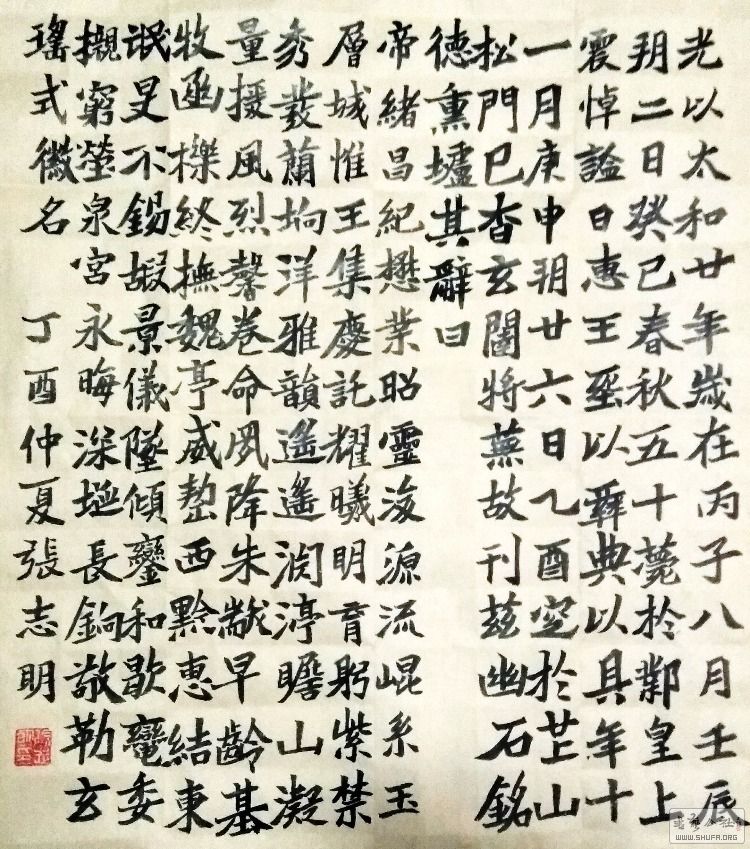 光以太和廿年歲在丙子八月壬辰
朔二日癸巳春秋五十薨於鄴皇上
震悼謚曰惠王葬以彝典以其年十
一月庚申朔廿六日乙酉窆於芒山
松門已杳玄闥將蕪故刊茲幽石銘
德熏壚其辭曰
帝緒昌紀懋業昭靈浚源流崐系玉
層城惟王集慶託耀曦明育躬紫禁
秀發蘭坰洋雅韻遙遙淵渟瞻山凝
量援風烈馨卷命夙降朱黻早齡基
牧函櫟終撫魏亭威整西黔惠結東
氓旻不錫嘏景儀墜傾鑾和歇委
櫬窮塋泉宮永晦深埏長敬勒玄
瑤式徽名 丁酉仲夏張志明
WWW.SHUFA.ORG